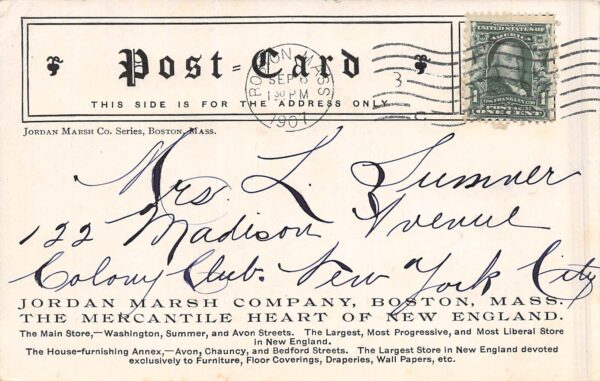 Post = Card
THIS SIDE IS FOR THE ADDRESS ONLY
BOSTON, MASS.
SEP 6
1 30 PM
1907
3
UNITED STATES OF AMERICA
FRANKLIN
1 POSTAGE 1
ONE CENT
JORDAN MARSH CO. SERIES, BOSTON, MASS.
Mrs. L. Sumner
122 Madison Avenue
Colony Club. New York City
JORDAN MARSH COMPANY, BOSTON, MASS.
THE MERCANTILE HEART OF NEW ENGLAND.
The Main Store,—Washington, Summer, and Avon Streets. The Largest, Most Progressive, and Most Liberal Store
in New England.
The House-furnishing Annex,—Avon, Chauncy, and Bedford Streets. The Largest Store in New England devoted
exclusively to Furniture, Floor Coverings, Draperies, Wall Papers, etc.